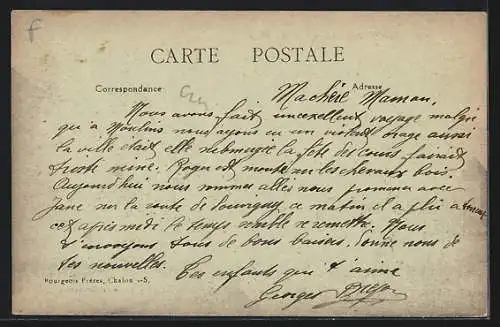 F
CARTE POSTALE
Correspondance
Adresse
Ma chère Maman,
Nous avons fait un excellent voyage malgré
qu'a Moulins nous ayons eu un violent orage aussi
la ville était elle submergée la fête des cours faisait
triste mine. Roger est monté sur les chevaux bois.
Aujourd'hui nous sommes allés nous promener avec
Jane sur la route de ce matin il a plu a
cet après midi le temps semble se remettre. Nous
t'envoyons tous de bons baisers. Donne nous de
tes nouvelles.
Tes enfants qui t'aime
Bourgeois Frères, Chalon s-S.
Georges